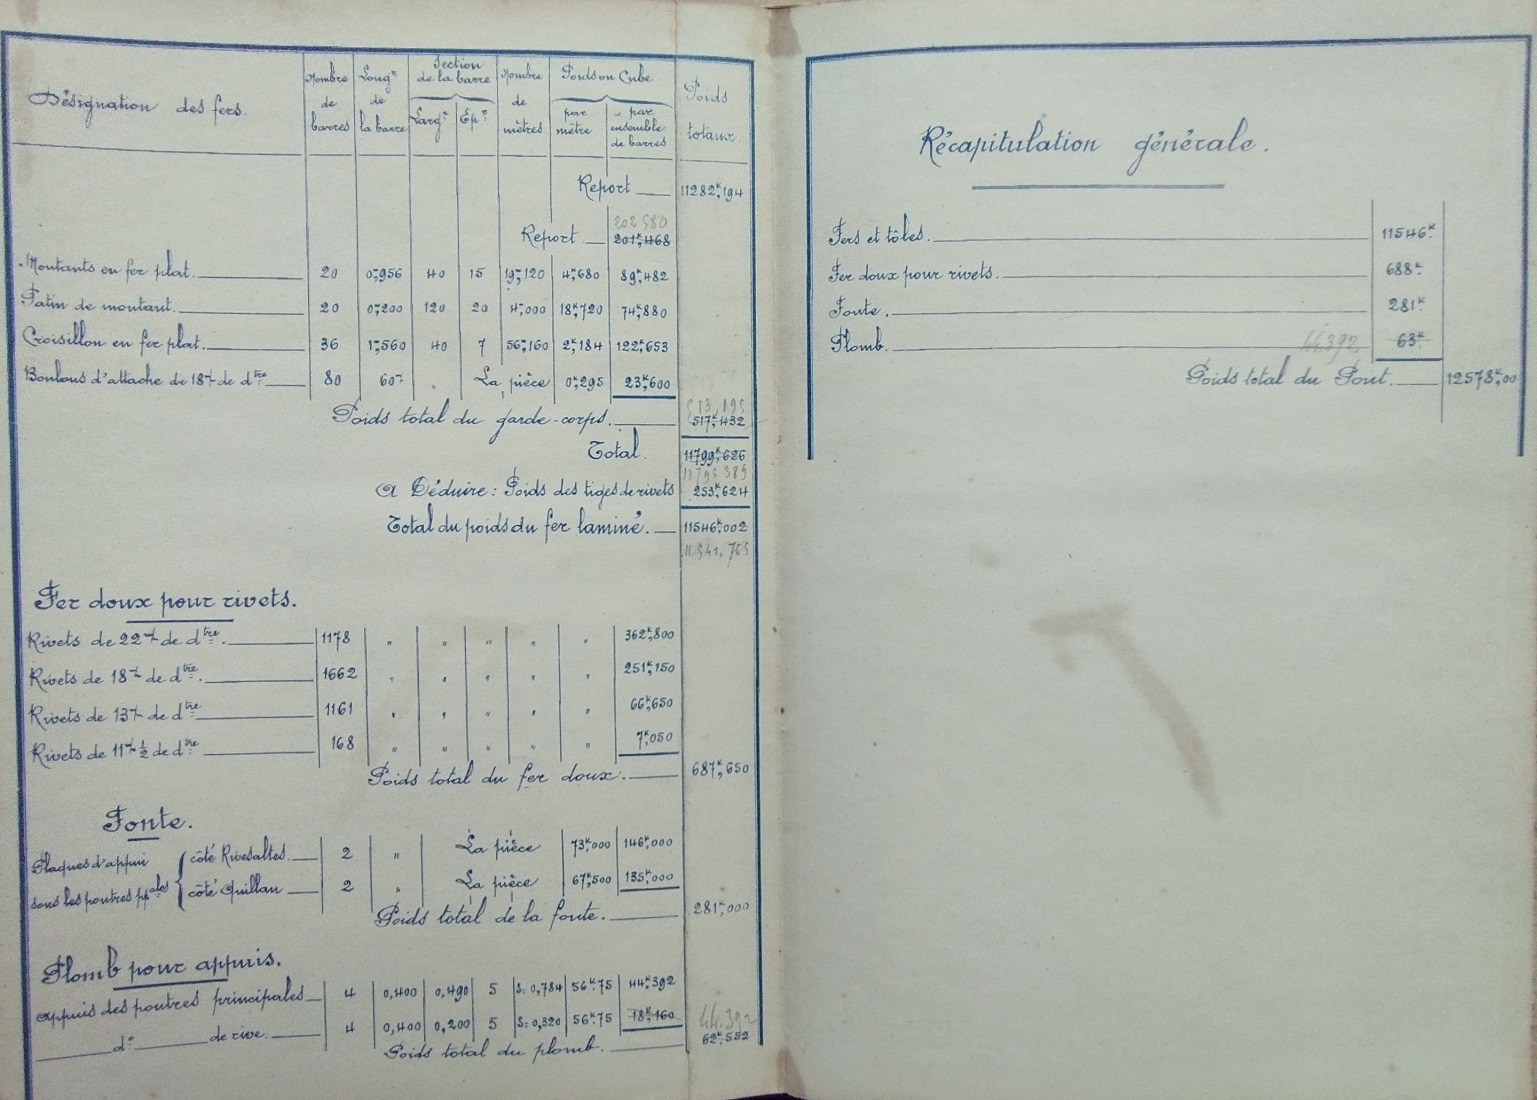 Désignation des fers.
Nombre de barres
Longr de la barre
Section de la barre
Largr
Epr
Nombre de mètres
Poids ou Cube
par mètre
par ensemble de barres
Poids totaux
Report 11282k,194
202 580
Report 201k,468
Montants en fer plat. 20 0m,956 40 15 19m,120 4k,680 89k,482
Patin de montant. 20 0m,200 120 20 4m,000 18k,720 74k,880
Croisillon en fer plat. 36 1m,560 40 7 56m,160 2k,184 122k,653
Boulons d'attache de 18m/m de dtre 80 60m/m " La pièce 0k,295 23k,600
513,195
Poids total du garde-corps. 517k,432
Total. 11799k,626
11795 389
A Déduire : Poids des tiges de rivets 253k,624
Total du poids du fer laminé. 11546k,002
11.541,765
Fer doux pour rivets.
Rivets de 22m/m de dtre. 1178 " " " " " 362k,800
Rivets de 18m/m de dtre. 1662 " " " " " 251k,150
Rivets de 13m/m de dtre 1161 " " " " " 66k,650
Rivets de 11m/m ½ de dtre 168 " " " " " 7k,050
Poids total du fer doux. 687k,650
Fonte.
Plaques d'appui sous les poutres ppales
côté Rivesaltes. 2 " La pièce 73k,000 146k,000
côté Quillan 2 " La pièce 67k,500 135k,000
Poids total de la fonte. 281k,000
Plomb pour appuis.
Appuis des poutres principales 4 0,400 0,490 5 S=0,784 56k75 44k,392
do de rive. 4 0,400 0,200 5 S=0,320 56k75 18k,160
44.392
Poids total du plomb. 62k,552
Récapitulation générale.
Fers et tôles. 11546k
Fer doux pour rivets. 688k
Fonte. 281k
Plomb. 44.392 63k
Poids total du Pont. 12578k,00